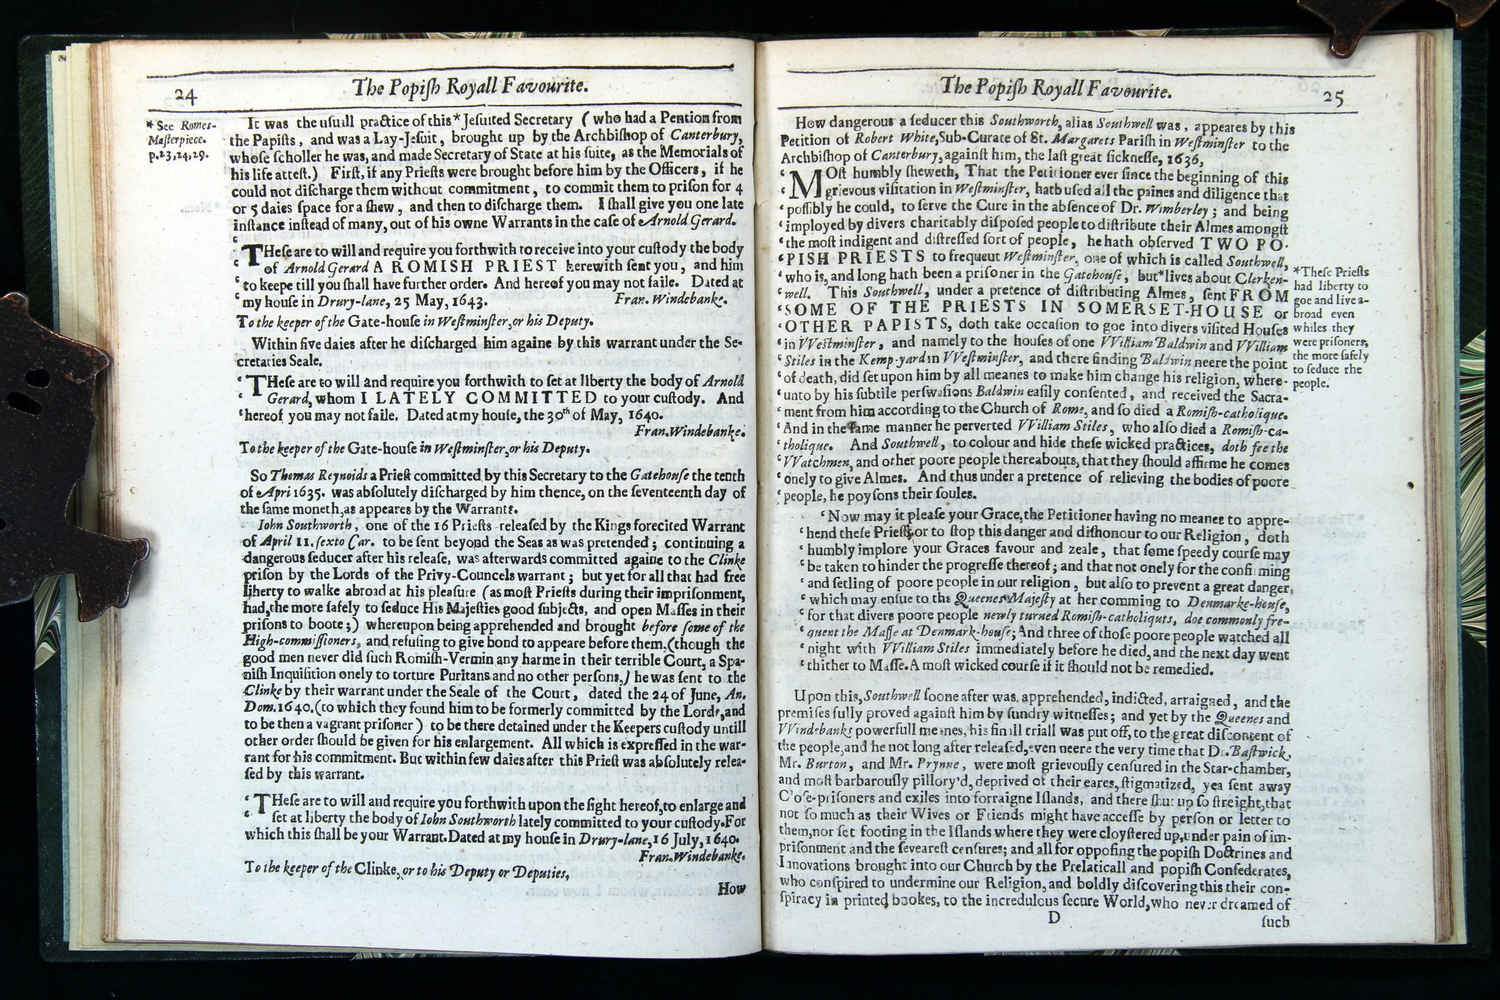 24
The Popiſh Royall Favourite.
* See Romes-
Maſterpiece.
p.23,24,29.
It was the uſuill practice of this * Jeſuited Secretary ( who had a Pention from
the Papiſts, and was a Lay-Jeſuit, brought up by the Archbiſhop of Canterbury,
whoſe ſcholler he was, and made Secretary of State at his ſuite, as the Memorials of
his life atteſt.) Firſt, if any Prieſts were brought before him by the Officers, if he
could not diſcharge them without commitment, to commit them to priſon for 4
or 5 daies ſpace for a ſhew, and then to diſcharge them. I ſhall give you one late
inſtance inſtead of many, out of his owne Warrants in the caſe of Arnold Gerard.
‘THeſe are to will and require you forthwith to receive into your cuſtody the body
‘ of Arnold Gerard A ROMISH PRIEST herewith ſent you, and him
‘ to keepe till you ſhall have further order. And hereof you may not faile. Dated at
‘ my houſe in Drury-lane, 25 May, 1643. Fran. Windebanke.
To the keeper of the Gate-houſe in Weſtminſter, or his Deputy.
Within five daies after he diſcharged him againe by this warrant under the Se-
cretaries Seale.
‘THeſe are to will and require you forthwith to ſet at liberty the body of Arnold
‘ Gerard, whom I LATELY COMMITTED to your cuſtody. And
‘ hereof you may not faile. Dated at my houſe, the 30th of May, 1640.
Fran. Windebanke.
To the keeper of the Gate-houſe in Weſtminſter, or his Deputy.
So Thomas Reynolds a Prieſt committed by this Secretary to the Gatehouſe the tenth
of Apri 1635. was abſolutely diſcharged by him thence, on the ſeventeenth day of
the ſame moneth, as appeares by the Warrants.
Iohn Southworth, one of the 16 Prieſts releaſed by the Kings forecited Warrant
of April 11. ſexto Car. to be ſent beyond the Seas as was pretended; continuing a
dangerous ſeducer after his releaſe, was afterwards committed againe to the Clinke
priſon by the Lords of the Privy-Councels warrant; but yet for all that had free
liberty to walke abroad at his pleaſure (as moſt Prieſts during their impriſonment,
had, the more ſafely to ſeduce His Majeſties good ſubjects, and open Maſſes in their
priſons to boote;) whereupon being apprehended and brought before ſome of the
High-commiſſioners, and refuſing to give bond to appeare before them, (though the
good men never did ſuch Romiſh-Vermin any harme in their terrible Court, a Spa-
niſh Inquiſition onely to torture Puritans and no other perſons,) he was ſent to the
Clinke by their warrant under the Seale of the Court, dated the 24 of June, An.
Dom. 1640. (to which they found him to be formerly committed by the Lords, and
to be then a vagrant priſoner ) to be there detained under the Keepers cuſtody untill
other order ſhould be given for his enlargement. All which is expreſſed in the war-
rant for his commitment. But within few daies after this Prieſt was abſolutely relea-
ſed by this warrant.
‘THeſe are to will and require you forthwith upon the ſight hereof, to enlarge and
‘ ſet at liberty the body of Iohn Southworth lately committed to your cuſtody. For
which this ſhall be your Warrant. Dated at my houſe in Drury-lane, 16 July, 1640.
Fran. Windebanke.
To the keeper of the Clinke, or to his Deputy or Deputies,
How
The Popiſh Royall Favourite.
25
How dangerous a ſeducer this Southworth, alias Southwell was, appeares by this
Petition of Robert White, Sub-Curate of St. Margarets Pariſh in Weſtminſter to the
Archbiſhop of Canterbury, againſt him, the laſt great ſickneſſe, 1636,
‘MOſt humbly ſheweth, That the Petitioner ever ſince the beginning of this
‘ grievous viſitation in Weſtminſter, hath uſed all the paines and diligence that
‘ poſſibly he could, to ſerve the Cure in the abſence of Dr. Wimberley; and being
‘ imployed by divers charitably diſpoſed people to diſtribute their Almes amongſt
‘ the moſt indigent and diſtreſſed ſort of people, he hath obſerved TWO PO-
‘ PISH PRIESTS to frequent Weſtminſter, one of which is called Southwell,
‘ who is, and long hath been a priſoner in the Gatehouſe, but * lives about Clerken-
‘ well. This Southwell, under a pretence of diſtributing Almes, ſent FROM
‘ SOME OF THE PRIESTS IN SOMERSET-HOUSE or
‘ OTHER PAPISTS, doth take occaſion to goe into divers viſited Houſes
‘ in Weſtminſter, and namely to the houſes of one William Baldwin and William
‘ Stiles in the Kemp-yard in Weſtminſter, and there finding Baldwin neere the point
‘ of death, did ſet upon him by all meanes to make him change his religion, where-
‘ unto by his ſubtile perſwaſions Baldwin eaſily conſented, and received the Sacra-
‘ ment from him according to the Church of Rome, and ſo died a Romiſh-catholique.
‘ And in the ſame manner he perverted William Stiles, who alſo died a Romiſh-ca-
‘ tholique. And Southwell, to colour and hide theſe wicked practices, doth fee the
‘ Watchmen, and other poore people thereabouts, that they ſhould affirme he comes
‘ onely to give Almes. And thus under a pretence of relieving the bodies of poore
‘ people, he poyſons their ſoules.
*Theſe Prieſts
had liberty to
goe and live a-
broad even
whiles they
were priſoners,
the more ſafely
to ſeduce the
people.
‘ Now may it pleaſe your Grace, the Petitioner having no meanes to appre-
‘ hend theſe Prieſts, or to ſtop this danger and diſhonour to our Religion, doth
‘ humbly implore your Graces favour and zeale, that ſome ſpeedy courſe may
‘ be taken to hinder the progreſſe thereof; and that not onely for the confirming
‘ and ſetling of poore people in our religion, but alſo to prevent a great danger,
‘ which may enſue to the Queenes Majeſty at her comming to Denmarke-houſe,
‘ for that divers poore people newly turned Romiſh-catholiquts, doe commonly fre-
‘ quent the Maſſe at Denmark-houſe; And three of thoſe poore people watched all
‘ night with William Stiles immediately before he died, and the next day went
‘ thither to Maſſe. A moſt wicked courſe if it ſhould not be remedied.
Upon this, Southwell ſoone after was apprehended, indicted, arraigned, and the
premiſes fully proved againſt him by ſundry witneſſes; and yet by the Queenes and
Windebanks powerfull meanes, his finall triall was put off, to the great diſcontent of
the people, and he not long after releaſed, even neere the very time that Dr. Baſtwick,
Mr. Burton, and Mr. Prynne, were moſt grievouſly cenſured in the Star-chamber,
and moſt barbarouſly pillory'd, deprived of their eares, ſtigmatized, yea ſent away
Cloſe-priſoners and exiles into forraigne Iſlands, and there ſhut up ſo ſtreight, that
not ſo much as their Wives or Friends might have acceſſe by perſon or letter to
them, nor ſet footing in the Iſlands where they were cloyſtered up, under pain of im-
priſonment and the ſevereſt cenſures; and all for oppoſing the popiſh Doctrines and
Innovations brought into our Church by the Prelaticall and popiſh Confederates,
who conſpired to undermine our Religion, and boldly diſcovering this their con-
ſpiracy in printed bookes, to the incredulous ſecure World, who never dreamed of
D
ſuch